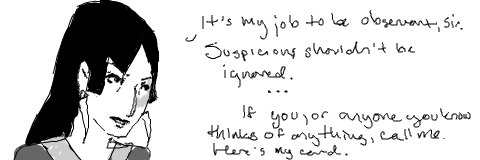 It's my job to be observant, sir.
Suspicions shouldn't be
ignored.
...
If you, or anyone you know
thinks of anything, call me.
Here's my card.